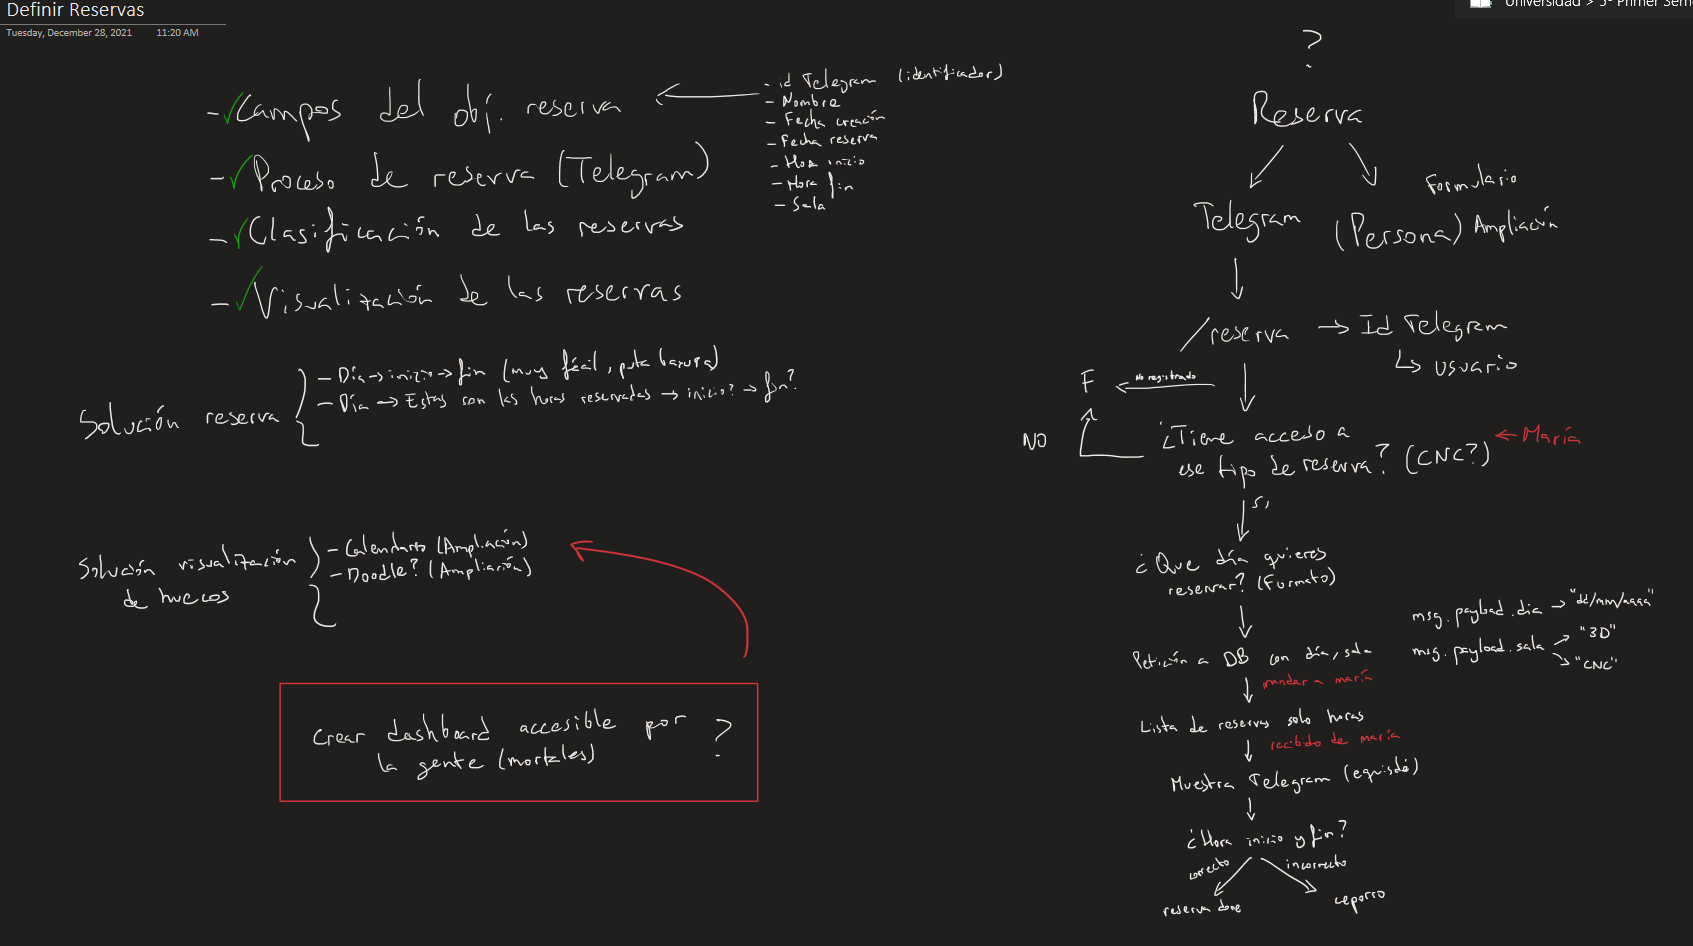 Definir Reservas
Tuesday, December 28, 2021 11:20 AM
Universidad > 5º Primer Sem
- Campos del obj. reserva
- id Telegram (identificador)
- Nombre
- Fecha creación
- Fecha reserva
- Hora inicio
- Hora fin
- Sala
- Proceso de reserva (Telegram)
- Clasificación de las reservas
- Visualización de las reservas
Solución reserva
- Día → inicio → fin (muy fácil, puta basura)
- Día → Estas son las horas reservadas → inicio? → fin?
Solución visualización
de huecos
- Calendario (Ampliación)
- Doodle? (Ampliación)
Crear dashboard accesible por
la gente (mortales)
?
?
Reserva
Telegram
(Persona)
Formulario
Ampliación
/reserva → Id Telegram
↳ usuario
F
No registrado
NO
¿Tiene acceso a
ese tipo de reserva? (CNC?)
← María
Sí
¿Que día quieres
reservar? (Formato)
Petición a DB con día, sala
mandar a maría
msg.payload.dia → "dd/mm/aaaa"
msg.payload.sala → "3D"
→ "CNC"
Lista de reservas solo horas
recibido de maría
Muestra Telegram (equisdé)
¿Hora inicio y fin?
correcto
incorrecto
reserva done
ceporro